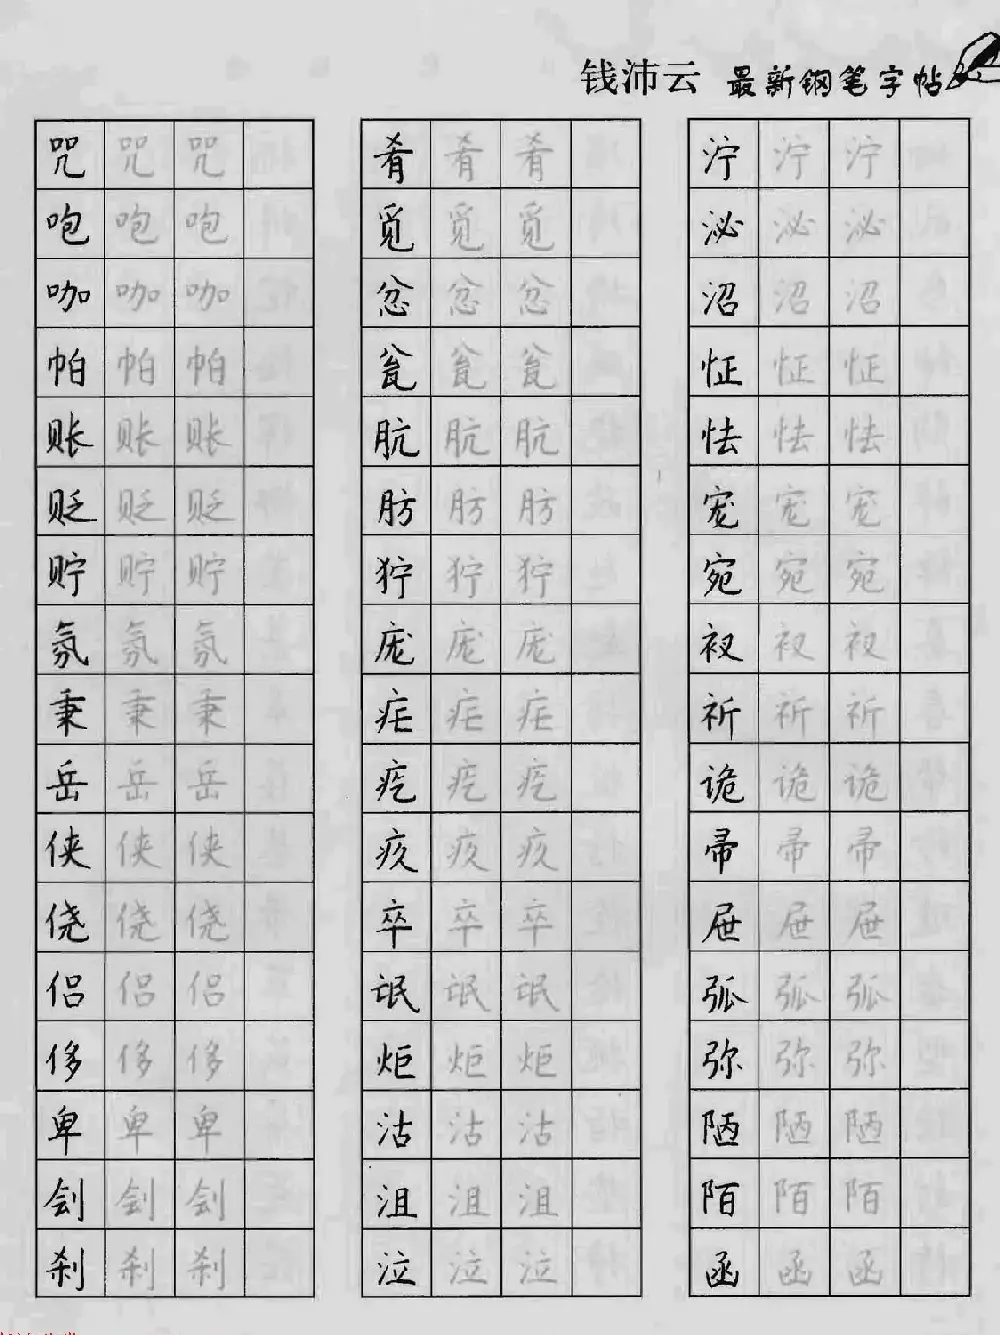 钱沛云 最新钢笔字帖
咒 咒 咒
咆 咆 咆
咖 咖 咖
帕 帕 帕
账 账 账
贬 贬 贬
贮 贮 贮
氛 氛 氛
秉 秉 秉
岳 岳 岳
侠 侠 侠
侥 侥 侥
侣 侣 侣
侈 侈 侈
卑 卑 卑
刽 刽 刽
刹 刹 刹
肴 肴 肴
觅 觅 觅
忿 忿 忿
瓮 瓮 瓮
肮 肮 肮
肪 肪 肪
狞 狞 狞
庞 庞 庞
疟 疟 疟
疙 疙 疙
疚 疚 疚
卒 卒 卒
氓 氓 氓
炬 炬 炬
沽 沽 沽
沮 沮 沮
泣 泣 泣
泞 泞 泞
泌 泌 泌
沼 沼 沼
怔 怔 怔
怯 怯 怯
宠 宠 宠
宛 宛 宛
衩 衩 衩
祈 祈 祈
诡 诡 诡
帚 帚 帚
屉 屉 屉
弧 弧 弧
弥 弥 弥
陋 陋 陋
陌 陌 陌
函 函 函